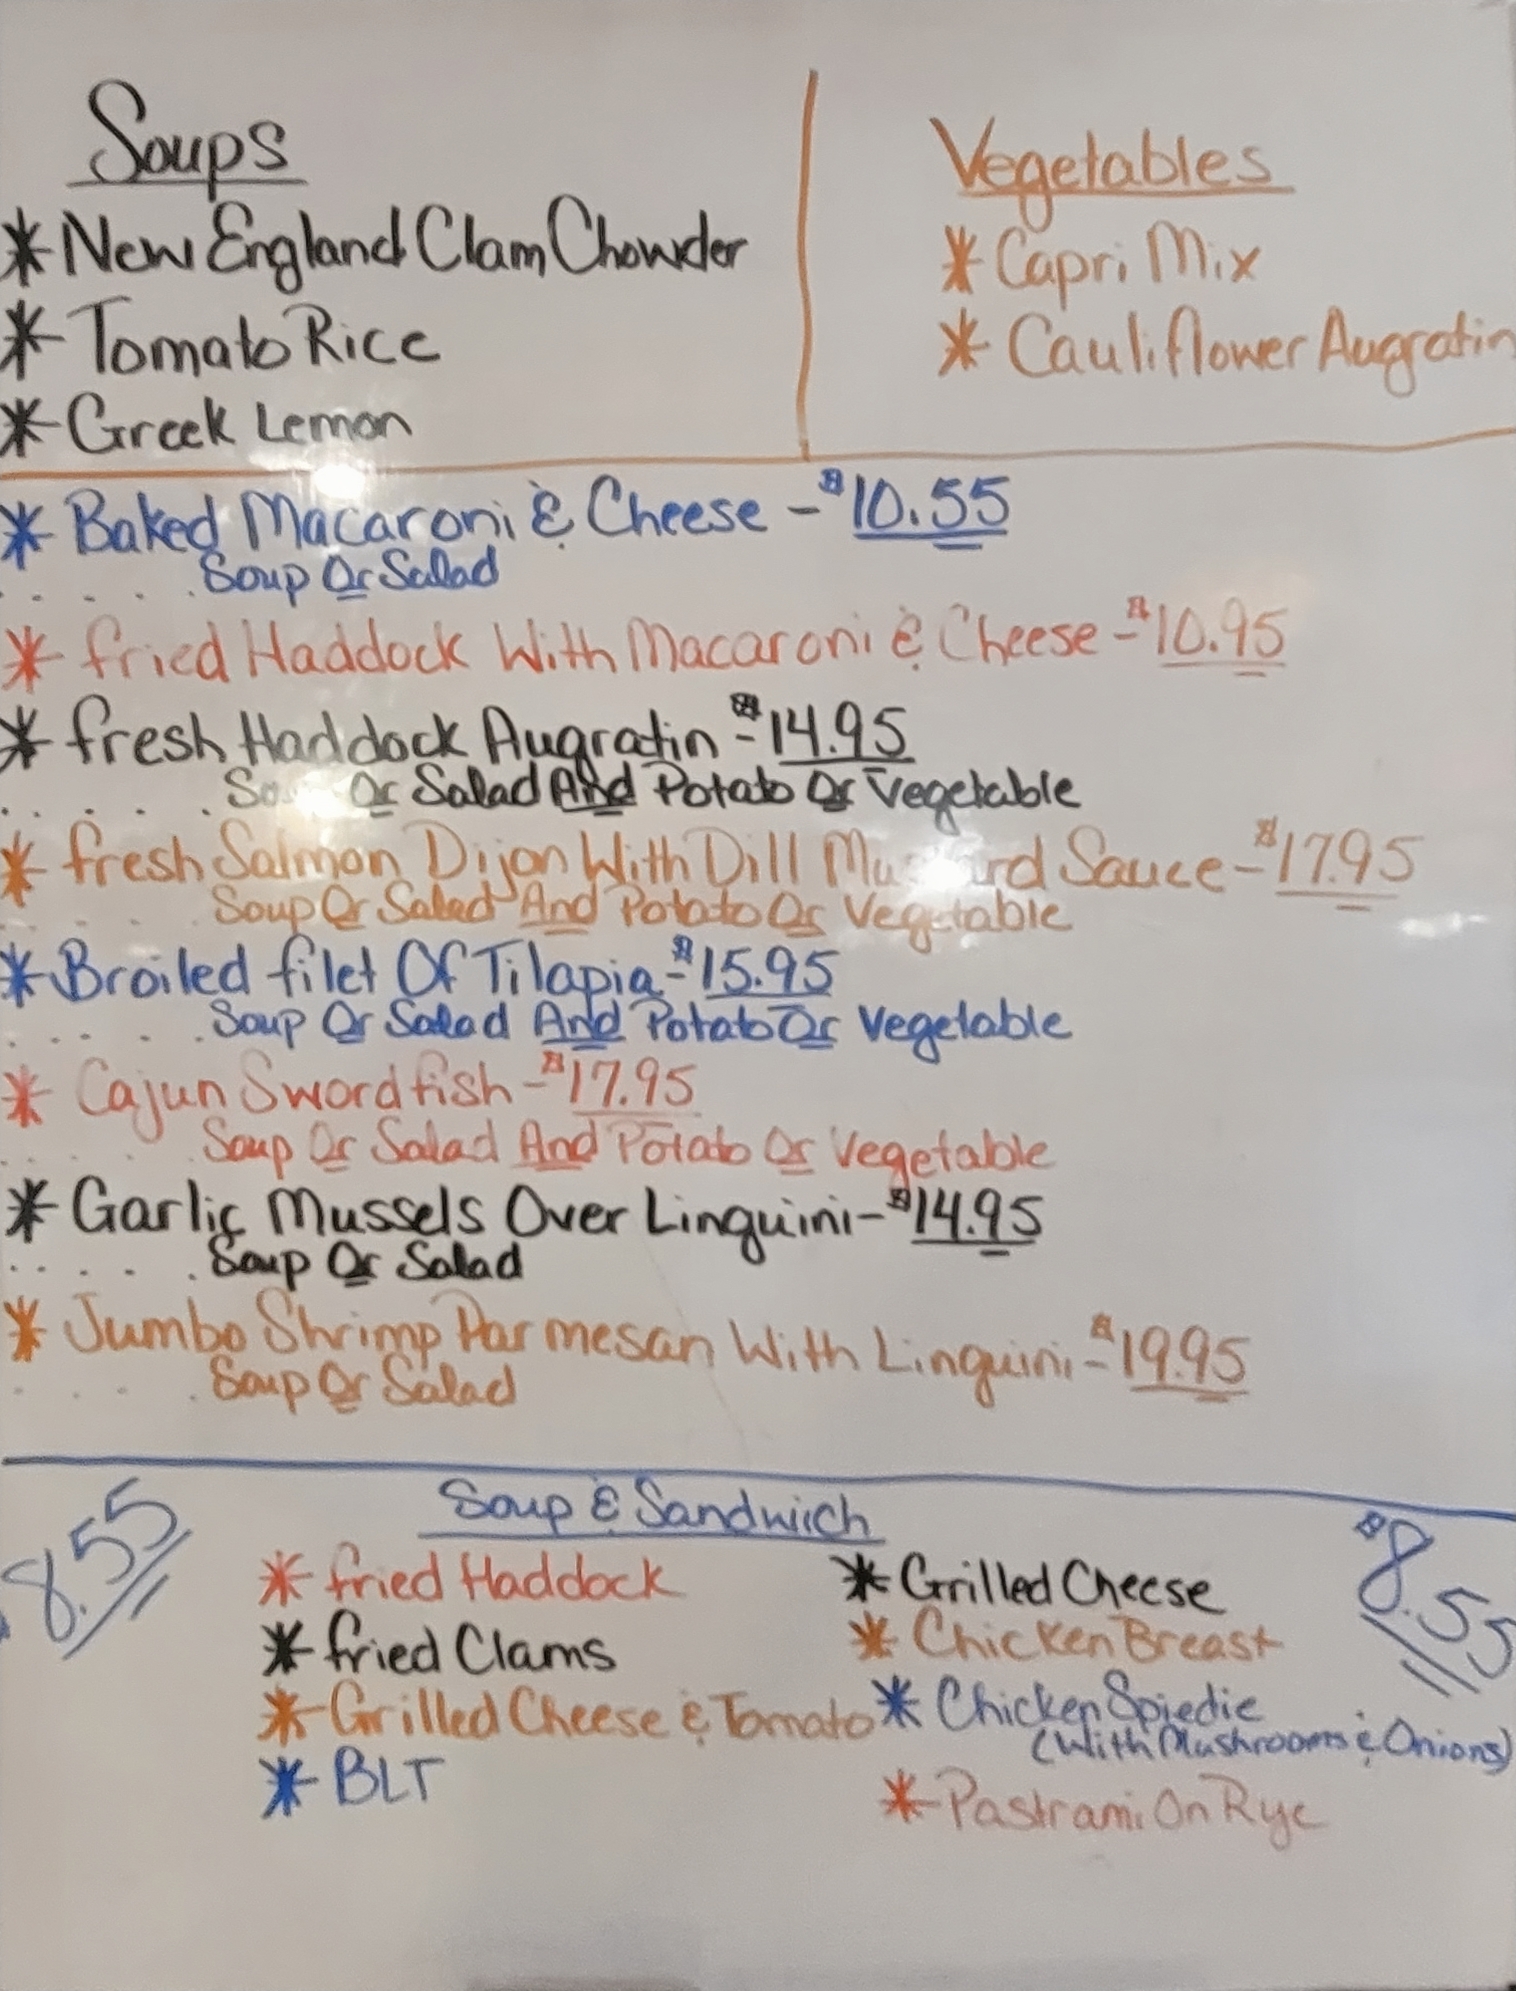 Soups
* New England Clam Chowder
* Tomato Rice
* Greek Lemon
Vegetables
* Capri Mix
* Cauliflower Augratin
* Baked Macaroni & Cheese - $10.55
. . . . . Soup Or Salad
* Fried Haddock With Macaroni & Cheese - $10.95
* Fresh Haddock Augratin - $14.95
. . . . . Or Salad And Potato Or Vegetable
* Fresh Salmon Dijon With Dill Mustard Sauce - $17.95
. . . . . Soup Or Salad And Potato Or Vegetable
* Broiled Filet Of Tilapia - $15.95
. . . . . Soup Or Salad And Potato Or Vegetable
* Cajun Swordfish - $17.95
. . . . . Soup Or Salad And Potato Or Vegetable
* Garlic Mussels Over Linguini - $14.95
. . . . . Soup Or Salad
* Jumbo Shrimp Parmesan With Linguini - $19.95
. . . . . Soup Or Salad
8.55
Soup & Sandwich
$8.55
* Fried Haddock
* Fried Clams
* Grilled Cheese & Tomato
* BLT
* Grilled Cheese
* Chicken Breast
* Chicken Spiedie
(With Mushrooms & Onions)
* Pastrami On Rye